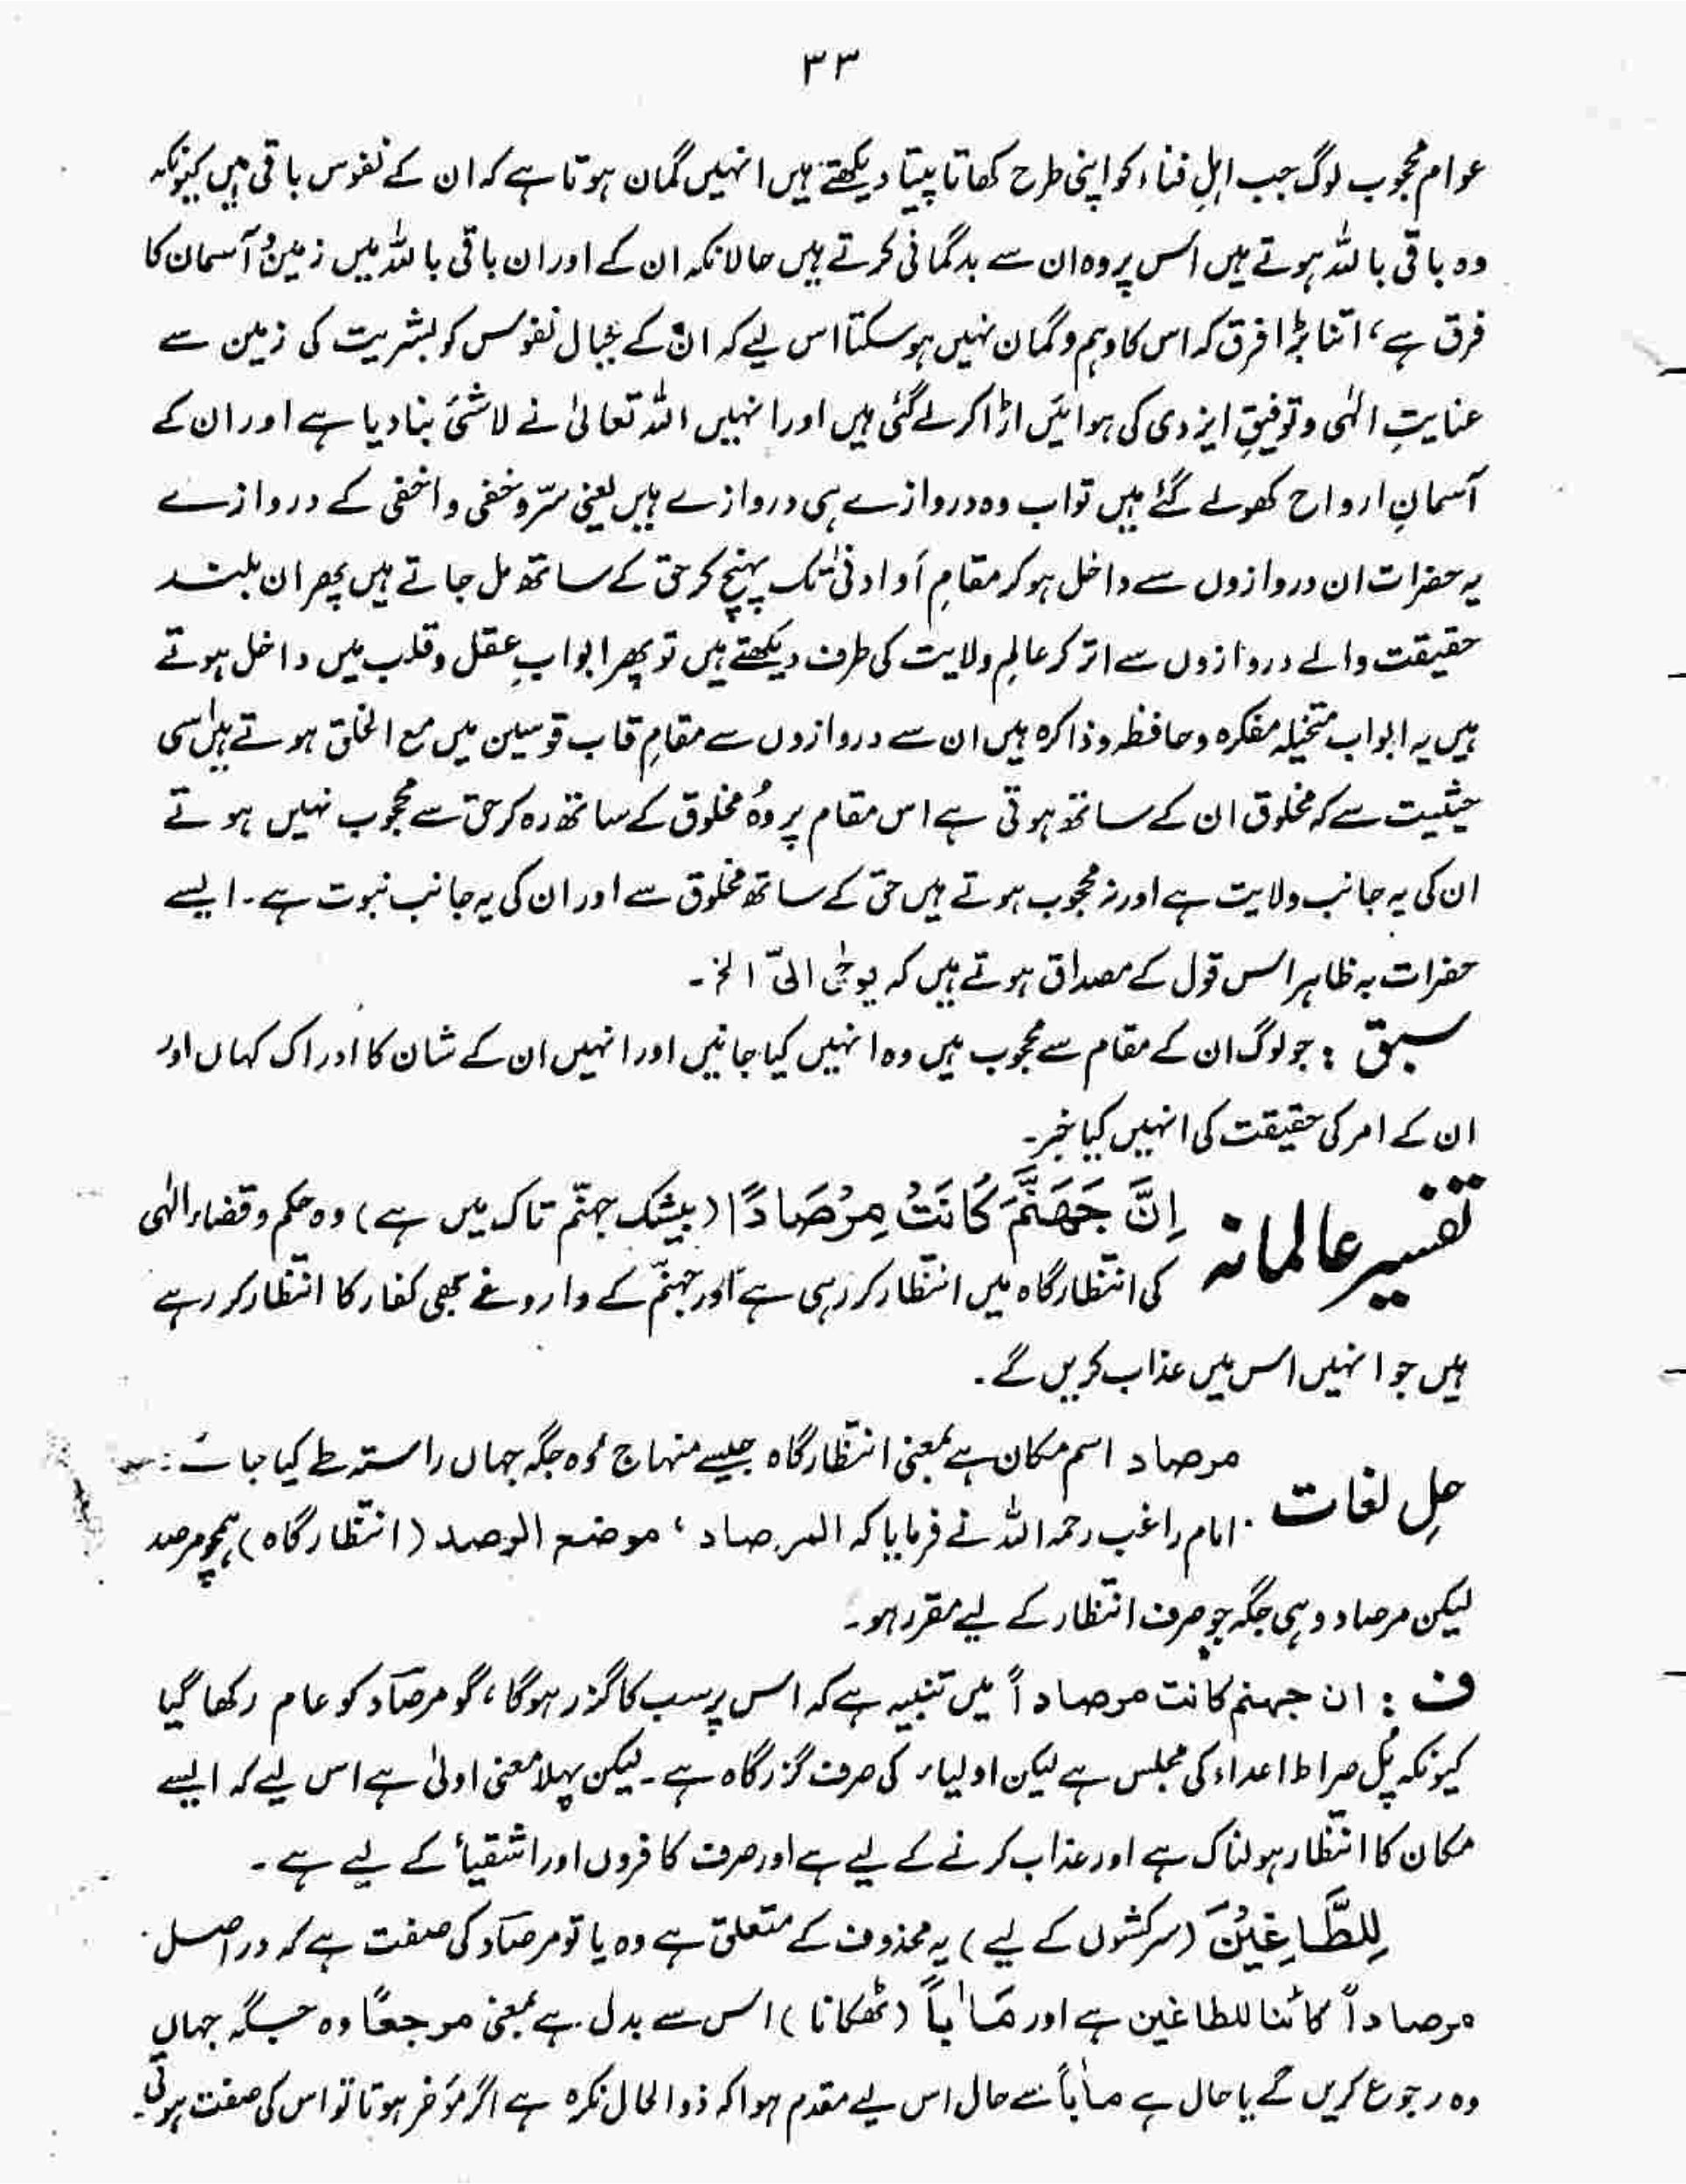 ۳۳
عوام محجوب لوگ جب اہلِ فناء کو اپنی طرح کھاتا پیتا دیکھتے ہیں انہیں گمان ہوتا ہے کہ ان کے نفوس باقی ہیں کیونکہ
وہ باقی باللہ ہوتے ہیں اس پر وہ ان سے بدگمانی کرتے ہیں حالانکہ ان کے اور ان باقی باللہ میں زمین و آسمان کا
فرق ہے، اتنا بڑا فرق کہ اس کا وہم و گمان نہیں ہو سکتا اس لیے کہ ان کے جبال نفوس کو بشریت کی زمین سے
عنایتِ الٰہی و توفیقِ ایزدی کی ہوائیں اڑا کر لے گئی ہیں اور انہیں اللہ تعالیٰ نے لاشئ بنا دیا ہے اور ان کے
آسمانِ ارواح کھولے گئے ہیں تو اب وہ دروازے ہی دروازے ہیں یعنی سرّ و خفی و اخفی کے دروازے
یہ حضرات ان دروازوں سے داخل ہو کر مقامِ اَو ادنیٰ تک پہنچ کر حق کے ساتھ مل جاتے ہیں پھر ان بلند
حقیقت والے دروازوں سے اتر کر عالمِ ولایت کی طرف دیکھتے ہیں تو پھر ابوابِ عقل و قلب میں داخل ہوتے
ہیں یہ ابواب متخیلہ مفکرہ و حافظہ و ذاکرہ ہیں ان سے دروازوں سے مقامِ قاب قوسین میں مع الخلق ہوتے ہیں اسی
حیثیت سے کہ مخلوق ان کے ساتھ ہوتی ہے اس مقام پر وُہ مخلوق کے ساتھ رہ کر حق سے محجوب نہیں ہوتے
ان کی یہ جانب ولایت ہے اور نہ محجوب ہوتے ہیں حق کے ساتھ مخلوق سے اور ان کی یہ جانب نبوت ہے۔ ایسے
حضرات بہ ظاہر اس قول کے مصداق ہوتے ہیں کہ یوحٰی الیّ الخ۔
سبق : جو لوگ ان کے مقام سے محجوب ہیں وہ انہیں کیا جانیں اور انہیں ان کے شان کا ادراک کہاں اور
ان کے امر کی حقیقت کی انہیں کیا خبر۔
تفسیر عالمانہ اِنَّ جَهَنَّمَ كَانَتْ مِرْصَادًا (بیشک جہنّم تاک میں ہے) وہ حکم و قضاء الٰہی
کی انتظار گاہ میں انتظار کر رہی ہے اور جہنّم کے داروغے بھی کفار کا انتظار کر رہے
ہیں جو انہیں اس میں عذاب کریں گے۔
حلِ لغات مرصاد اسم مکان ہے بمعنی انتظار گاہ جیسے منہاج وُہ جگہ جہاں راستہ طے کیا جائے۔
امام راغب رحمہ اللہ نے فرمایا کہ المرصاد، موضع الرصد (انتظار گاہ) ہمچو مرصد
لیکن مرصاد وہی جگہ جو صرف انتظار کے لیے مقرر ہو۔
ف : ان جہنم کانت مرصاداً میں تنبیہ ہے کہ اس پر سب کا گزر ہوگا، گو مرصاد کو عام رکھا گیا
کیونکہ پُل صراط اعداء کی مجلس ہے لیکن اولیاء کی صرف گزرگاہ ہے۔ لیکن پہلا معنی اولیٰ ہے اس لیے کہ ایسے
مکان کا انتظار ہولناک ہے اور عذاب کرنے کے لیے ہے اور صرف کافروں اور اشقیاء کے لیے ہے۔
لِلطَّاغِيْنَ (سرکشوں کے لیے) یہ محذوف کے متعلق ہے وہ یا تو مرصاد کی صفت ہے کہ دراصل
مرصاداً کائنا للطاغین ہے اور مَاٰباً (ٹھکانا) اس سے بدل ہے بمعنی مرجعًا وہ جگہ جہاں
وہ رجوع کریں گے یا حال ہے ماٰباً سے حال اس لیے مقدم ہوا کہ ذوالحال نکرہ ہے اگر مؤخر ہوتا تو اس کی صفت ہوتی۔